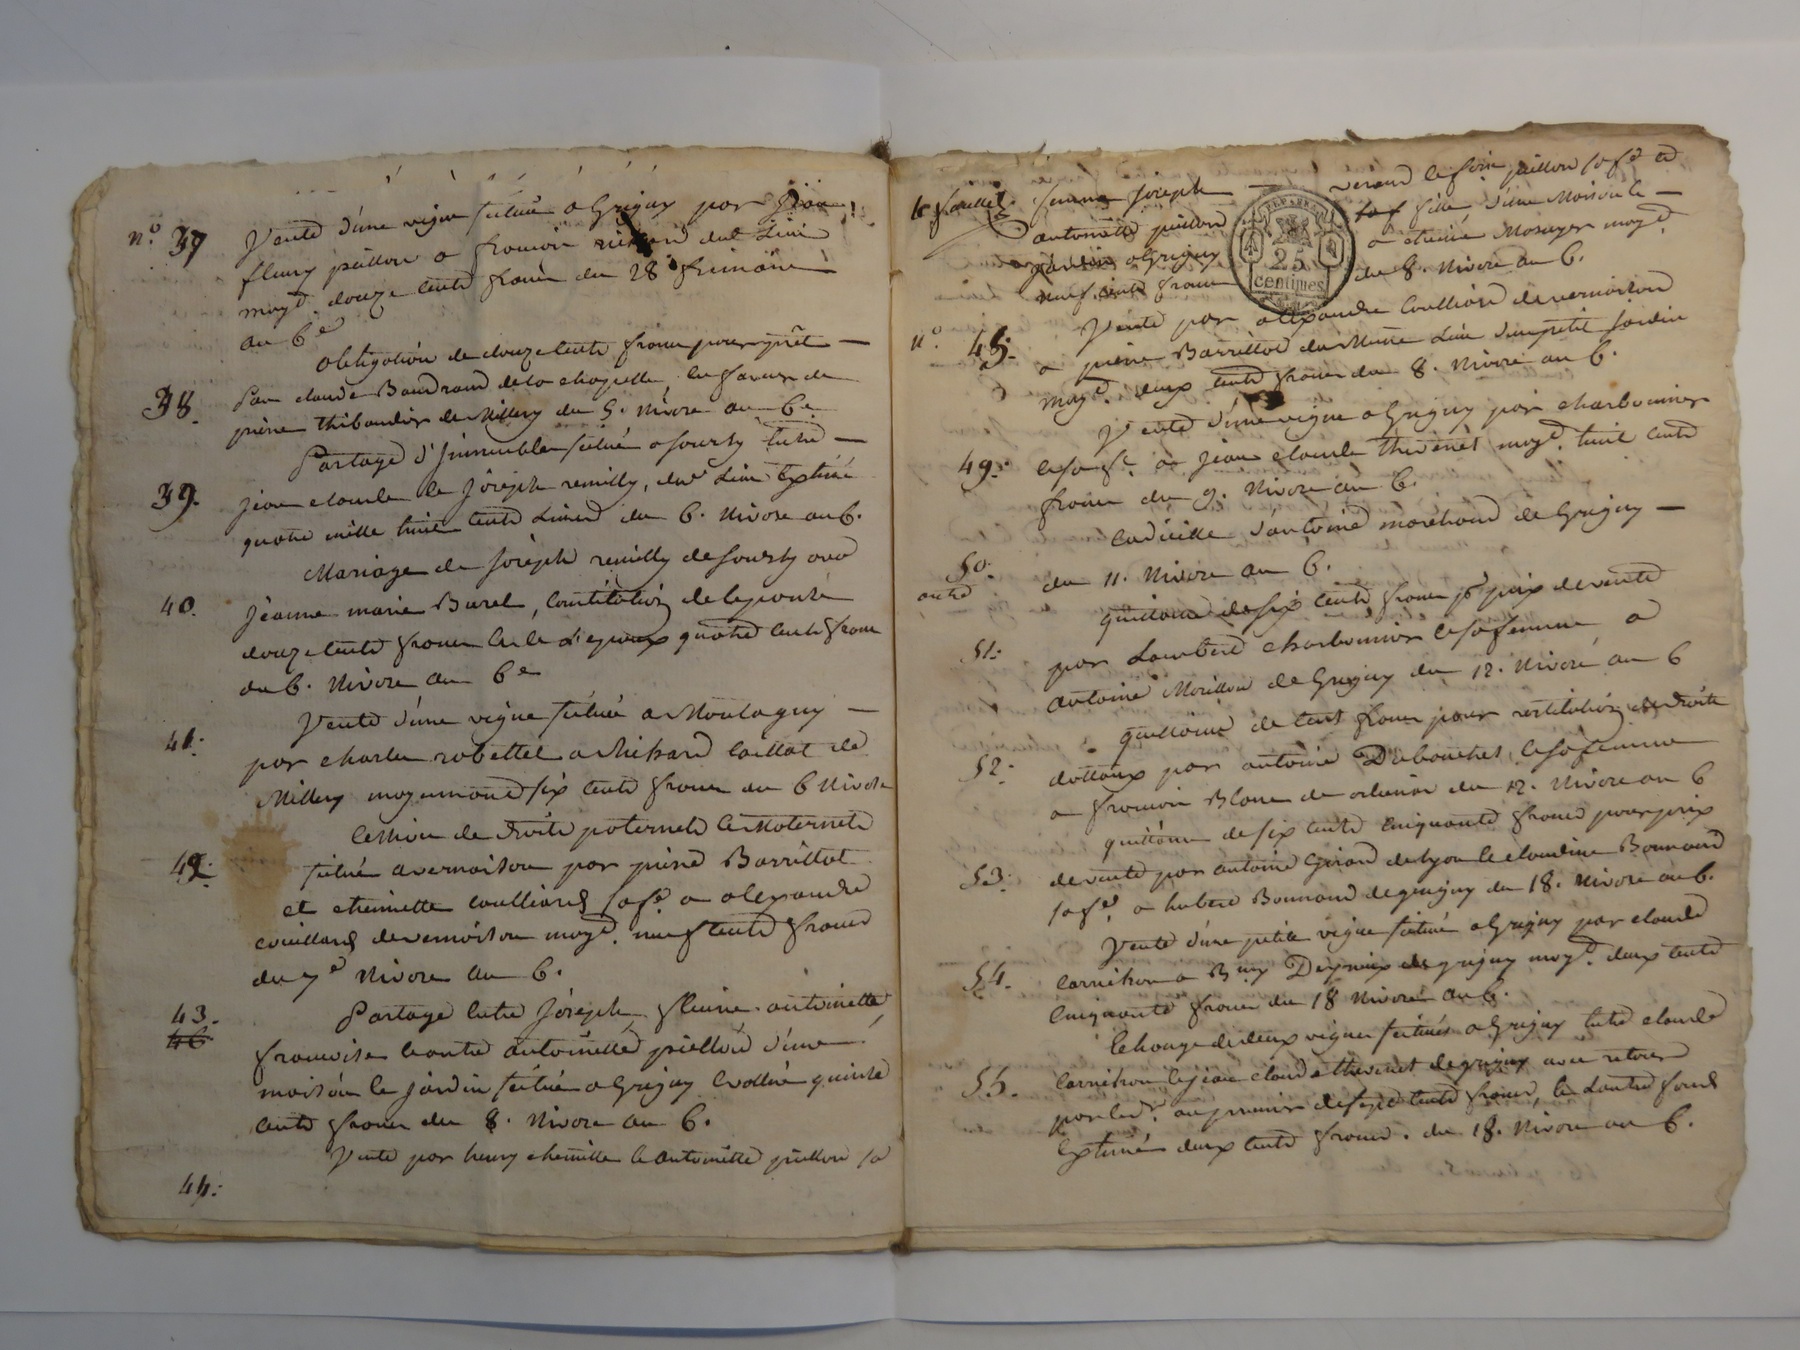 n.º 37 Vente d'une vigne située a Grigny par Jean
fleury pitton a francois richard dud. Lieu
moy.t douze cents francs du 28 frimaire
an 6e
obligation de douze cents francs pour prêt —
38. Par claude Baudrand de la chapelle, en faveur de
pierre thibaudier de Millery du 5. Nivose an 6e
Partage d'immeubles situés a sourzy entre —
39. jean claude et joseph remilly, dud. Lieu Extimé
quatre mille huit cents Livres du 6. Nivose an 6.
Mariage de joseph remilly de sourzy avec
40. jeanne marie Burel, Constitution de l'épouse
douze cents francs et de l'epoux quatre cents francs
du 6. Nivose an 6e
Vente d'une vigne située a Montagny —
41. par charles robettet a Richard caillot de
Millery moyennant six cents francs du 6 Nivose
Cession de droits paternels et Maternels
42. situés a vernaison par pierre Barrillot
et etiennette coulliard sa fe. a alexandre
coulliard de vernaison moy.t neuf cents francs
du 7e Nivose an 6.
43. Partage entre joseph, fleurie, antoinette,
46 francoise et autre antoinette pitton d'une
maison et jardin situés a Grigny Evallué quinze
cents francs du 8. Nivose an 6.
44. Vente par henry chemitte et antoinette pitton sa
femme joseph
antoinette pitton fille d'une Maison et —
jardin a Grigny a etienne moy.t
neuf cents francs du 8. Nivose an 6.
n.º 48. Vente par alexandre Coulliard de vernaison
a pierre Barrillot du Même Lieu d'un petit jardin
moy.t deux cents francs du 8. Nivose an 6.
Vente d'une vigne a Grigny par charbonnier
49. et sa fe. a jean claude thevenet moy.t huit cents
francs du 9. Nivose an 6.
50. d'antoine marchand de Grigny —
du 11. Nivose an 6.
quittance de six cents francs pr prix de vente
51. par Lambert charbonnier et sa femme a
antoine Morillon de Grigny du 12. Nivose an 6
quittance de cent francs pour restitution de droits
52. dottaux par antoine Dubouchet et sa femme
a francois Blanc de du 12. Nivose an 6
quittance de six cents cinquante francs pour prix
53. de vente par antoine Girard de lyon et claudine Bonnand
sa fe. a hubert Bonnand de grigny du 18. Nivose an 6.
Vente d'une petite vigne située a Grigny par claude
54. Carrichon a de grigny moy.t deux cents
Cinquante francs du 18 Nivose an 6.
Echange de deux vignes situées a Grigny entre claude
55. Carrichon et jean claude thevenet de grigny avec retour
par le dr. au premier de sept cents francs, et L'autre fonds
Extimé deux cents francs. du 18. Nivose an 6.
REP. FRA.
25
centimes